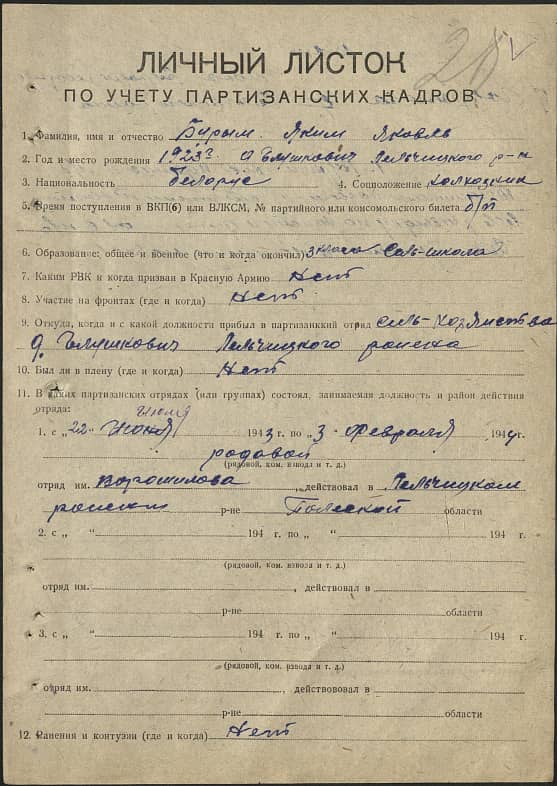 28
ЛИЧНЫЙ ЛИСТОК
ПО УЧЕТУ ПАРТИЗАНСКИХ КАДРОВ
1. Фамилия, имя и отчество Бурым Яким Яковль
2. Год и место рождения 1923г д Глушкович Лельчицкого р-н
3. Национальность беларус 4. Соцположение колхозник
5. Время поступления в ВКП(б) или ВЛКСМ, № партийного или комсомольского билета б/п
6. Образование: общее и военное (что и когда окончил) 3 класа сель-школа
7. Каким РВК и когда призван в Красную Армию Нет
8. Участие на фронтах (где и когда) Нет
9. Откуда, когда и с какой должности прибыл в партизанккий отряд сель-хозяиства
д. Глушкович Лельчицкого раиена
10. Был ли в плену (где и когда) Нет
11. В каких партизанских отрядах (или группах) состоял, занимаемая должность и район действия
отряда: июля
1. с „ 22 “ Июня 1943 г. по „ 3 “ Февраля 1944 г.
родовой
(рядовой, ком. взвода и т. д.)
отряд им. Ворошилова, действовал в Лельчицком
раиени р-не Полеской области
2. с „ “ 194 г. по „ “ 194 г.
(рядовой, ком. взвода и т. д.)
отряд им. , действовал в
р-не области
3. с „ “ 194 г. по „ “ 194 г.
(рядовой, ком. взвода и т. д.)
отряд им. , действовал в
р-не области
12. Ранения и контузии (где и когда) Нет